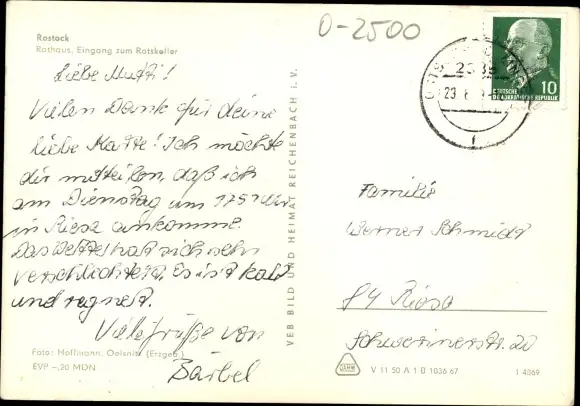 Rostock
Rathaus, Eingang zum Ratskeller
Liebe Mutti!
Vielen Dank für deine
liebe Karte! Ich möchte
dir mitteilen, daß ich
am Dienstag um 17 57 Uhr
in Riesa ankomme.
Das Wetter hat sich sehr
verschlechtert. Es ist kalt
und regnet.
Viele Grüße von
Bärbel
Foto: Hoffmann, Oelsnitz (Erzgeb.)
EVP -,20 MDN
VEB BILD UND HEIMAT REICHENBACH i. V.
O-2500
10
DEUTSCHE
DEMOKRATISCHE REPUBLIK
Familie
Werner Schmidt
84 Riesa
Schwerinerstr. 20
V 11 50 A 1 B 1036 67
1 4069